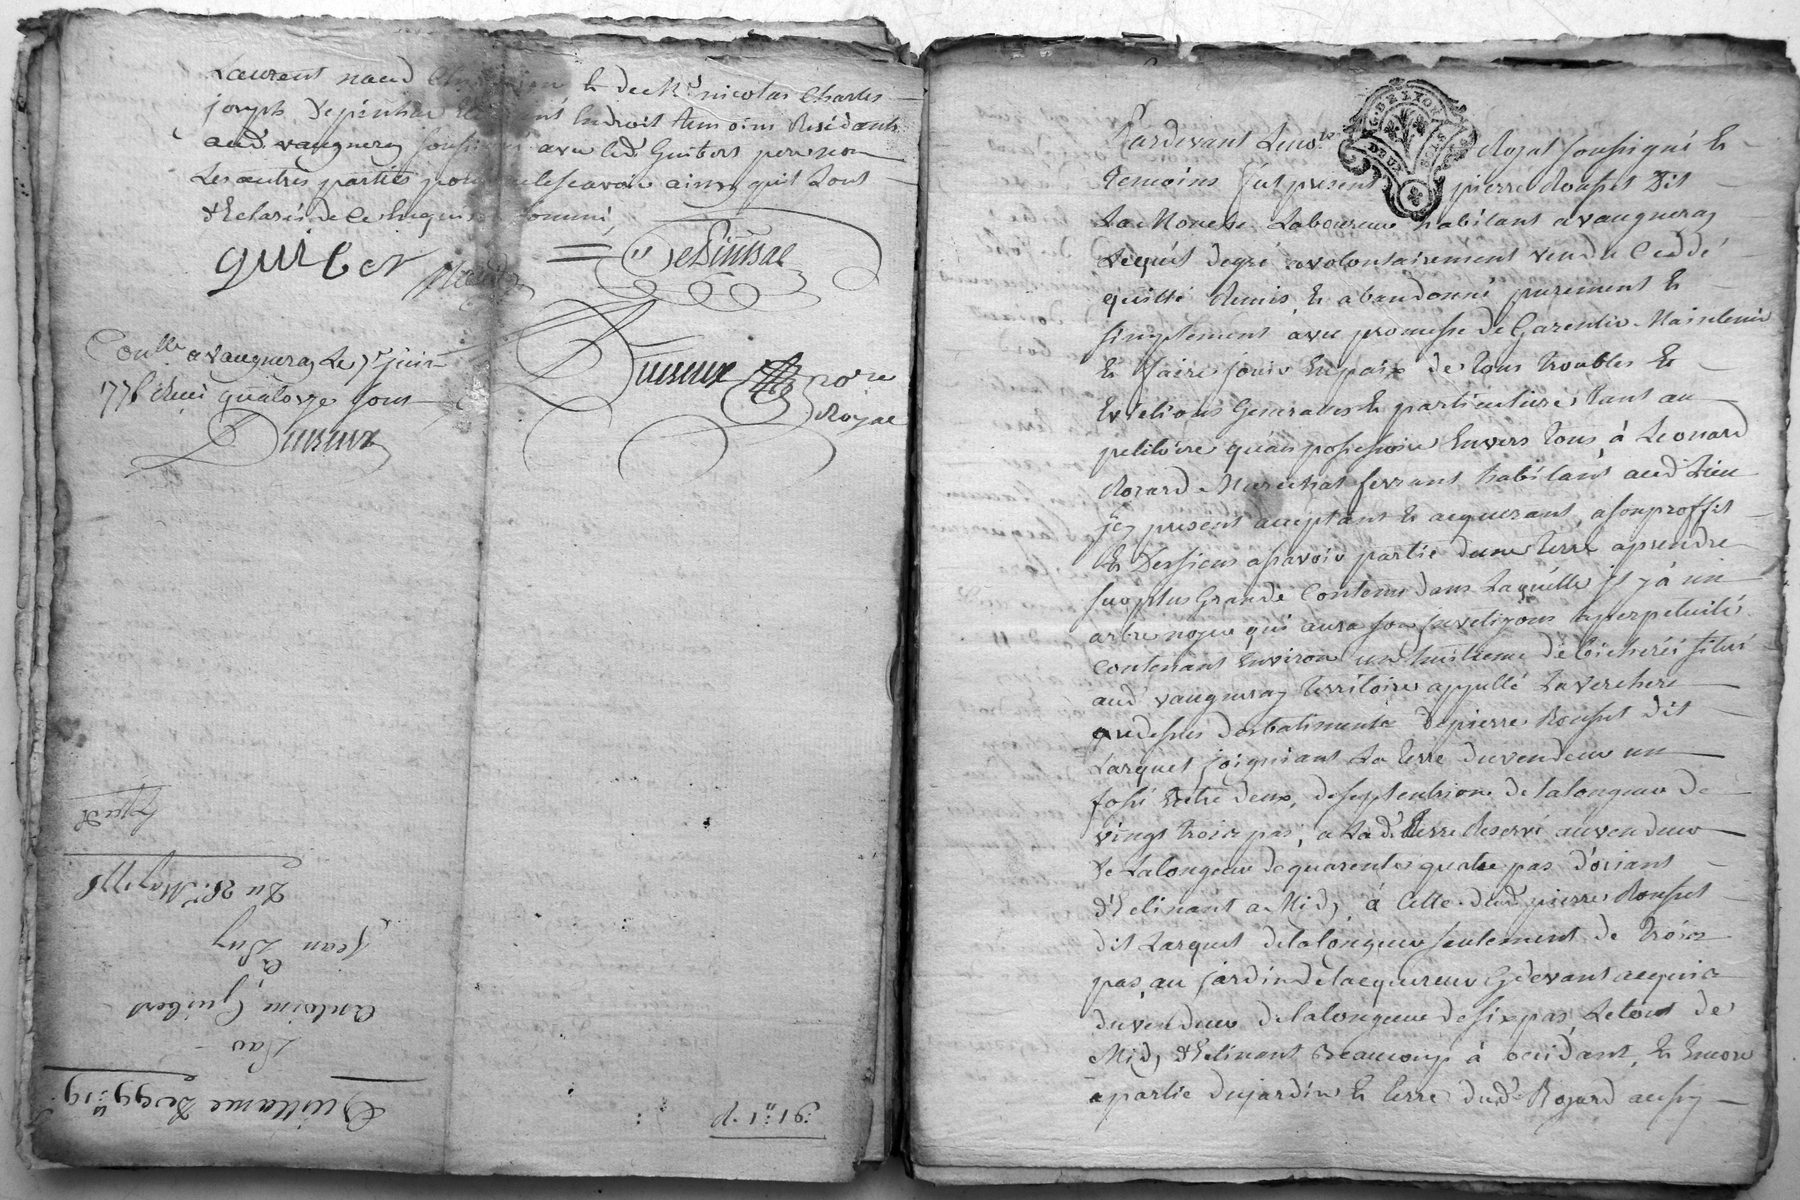 Laurent naud et de Mr nicolas Charles
joseph Depenhac en droit temoins Residants
aud. vaugneray avec led. Guibert pere non
Les autres parties pour ne scavoir ainsy quil Lont
declaré de ce enquis
guiber Naud
Depinhac
Dumeux nore
Royal
Conlle a vaugneray Le juin
1778 Reçu quatorze sous
Dumeux
Quittance De 99ᵗᵗ: 19
Par
Antoine Guibert
à
Jean Puy
Du 28e May 1778
Exped
G. DE LYON
DEUX
Pardevant Le nore Royal soussigné Et
temoins fut present pierre Rouset Dit
La Laboureur habitant a vaugneray
Lequel de gré & volontairement vend Cedde
quitte Remis Et abandonné purement Et
simplement avec promesse de Garentir Maintenir
Et faire jouir En paix de tous troubles Et
Evictions Generalles Et particulieres tant au
petitoire qu'au possessoire Envers tous à Leonard
Rozard Marechal ferrant habitant aud. Lieu
jcy present acceptant Et acquerant, a son proffit
Et Des siens a savoir partie dune terre a prendre
sur plus Grande Contenue dans Laquelle il y à un
arbre noyer qui aura son a perpetuité
contenant Environ un huitieme de bicherée située
aud. vaugneray territoire appellé La verchere
au dessus des batiments de pierre Rouset dit
Larquet joignant La terre du vendeur un
fossé Entre deux, de septentrion de la longueur de
vingt trois pas, a La d. terre Reservé au vendeur
de La longueur de quarente quatre pas d'oriant
déclinant a Midy, à Celle dud. pierre Rouset
dit Larquet de la longueur seulement de trois
pas, au jardin de l'acquereur Cy devant acquis
du vendeur de la longueur de six pas Le tout de
Midy déclinant Beaucoup à occidant, Et Encore
a partie du jardin Et terre dud. Rozard aussy